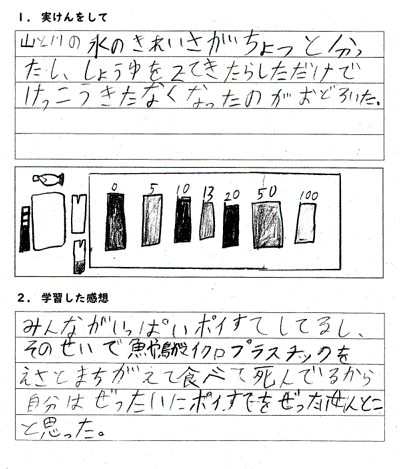 1. 実けんをして
山と川の水のきれいさがちょっと分っ
たし、しょうゆを2てきたらしただけで
けっこうきたなくなったのがおどろいた。
0 5 10 13 20 50 100
2. 学習した感想
みんながいっぱいポイすてしてるし、
そのせいで魚や鳥がマイクロプラスチックを
えさとまちがえて食べて死んでるから
自分はぜったいにポイすてをぜったいせんとこ
と思った。